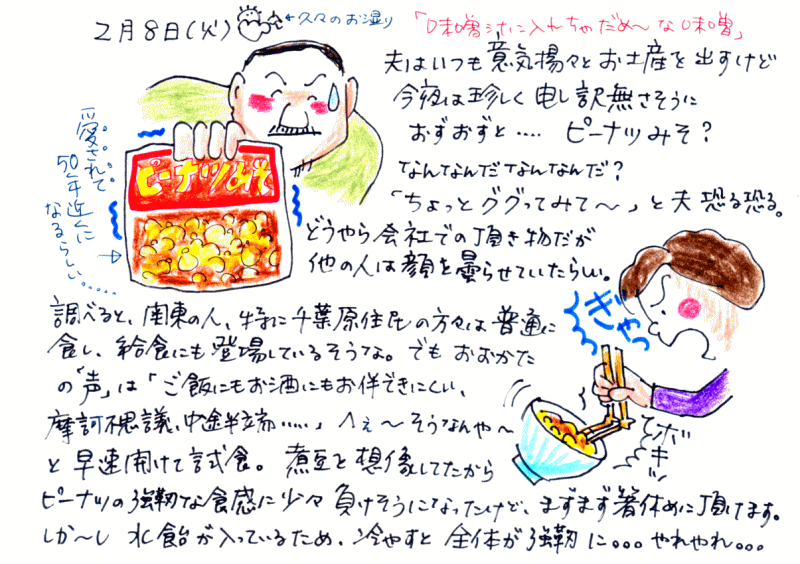 2月8日(火)
←久々のお湿り
「味噌汁に入れちゃだめ〜な味噌」
夫はいつも意気揚々とお土産を出すけど
今夜は珍しく申し訳無さそうに
おずおずと…… ピーナツみそ？
なんなんだなんなんだ？
「ちょっとググってみて〜」と夫恐る恐る。
どうやら会社での頂き物だが
他の人は顔を曇らせていたらしい。
愛されて
50年近くに
なるらしい……
ピーナツみそ
調べると、関東の人、特に千葉原住民の方々は普通に
食し、給食にも登場しているそうな。でもおおかた
の「声」は「ご飯にもお酒にもお伴できにくい、
摩訶不思議、中途半端……」へぇ〜そうなんや〜
と早速開けて試食。煮豆と想像してたから
ピーナツの強靭な食感に少々負けそうになったけど、まずまず箸休めに頂けます。
しか〜し水飴が入っているため、冷やすと全体が強靭に。。。やれやれ。。。
ぎゃっ
ボキッ